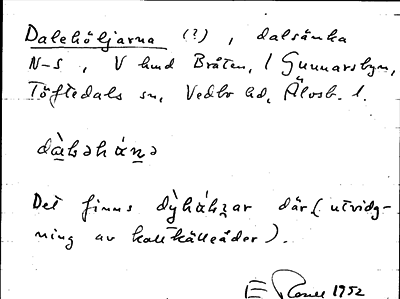 Dalehöljarna (?), dalsänka
N-S, V hmd Bråten, / Gunnarsbyn,
Töftedals sn, Vedbo hd, Älvsb. l.
Det finns dỳhá̀h̥ar där (utvidg-
ning av kallkälleåder).
1952